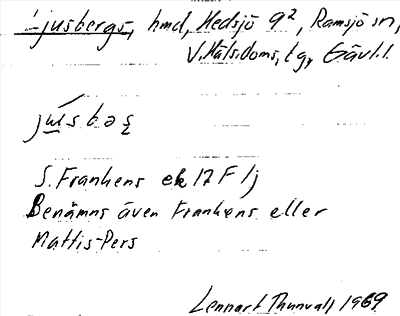 Ljusbergs, hmd, Hedsjö 9², Ramsjö sn,
V. Häls. doms. tg, Gävl. l.
S. Frankens ek 17 F 1j
Benämns även Frankens eller
Mattis-Pers
Lennart Thunvall 1969